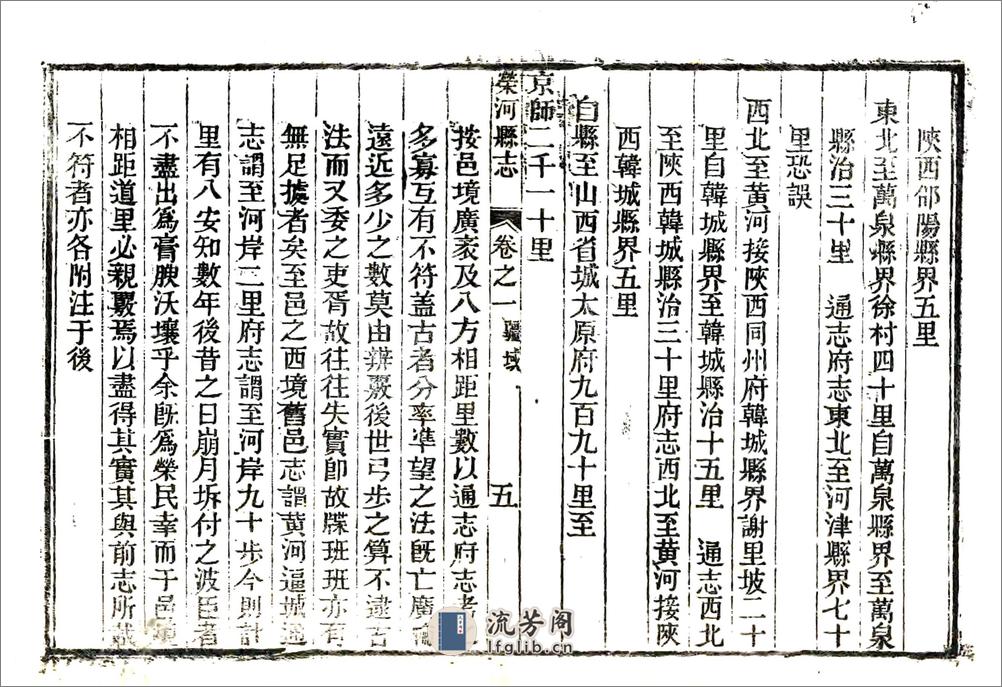 陝西郃陽縣界五里
東北至萬泉縣界徐村四十里自萬泉縣界至萬泉
縣治三十里　通志府志東北至河津縣界七十
里恐誤
西北至黃河接陝西同州府韓城縣界謝里坡二十
里自韓城縣界至韓城縣治十五里　通志西北
至陝西韓城縣治三十里府志西北至黃河接陝
西韓城縣界五里
自縣至山西省城太原府九百九十里至
京師二千一十里
榮河縣志　卷之一　疆域　五
按邑境廣袤及八方相距里數以通志府志考
多寡互有不符蓋古者分率準望之法旣亡廣
遠近多少之數莫由辨覈後世弓步之算不逮古
法而又委之吏胥故往往失實卽故牒班班亦有
無足據者矣至邑之西境舊邑志謂黃河逼城通
志謂至河岸二里府志謂至河岸九十步今則計
里有八安知數年後昔之日崩月坼付之波臣者
不盡出爲膏腴沃壤乎余旣爲榮民幸而于邑
相距道里必親覈焉以盡得其實其與前志所載
不符者亦各附注于後
流芳阁
lfglib.com